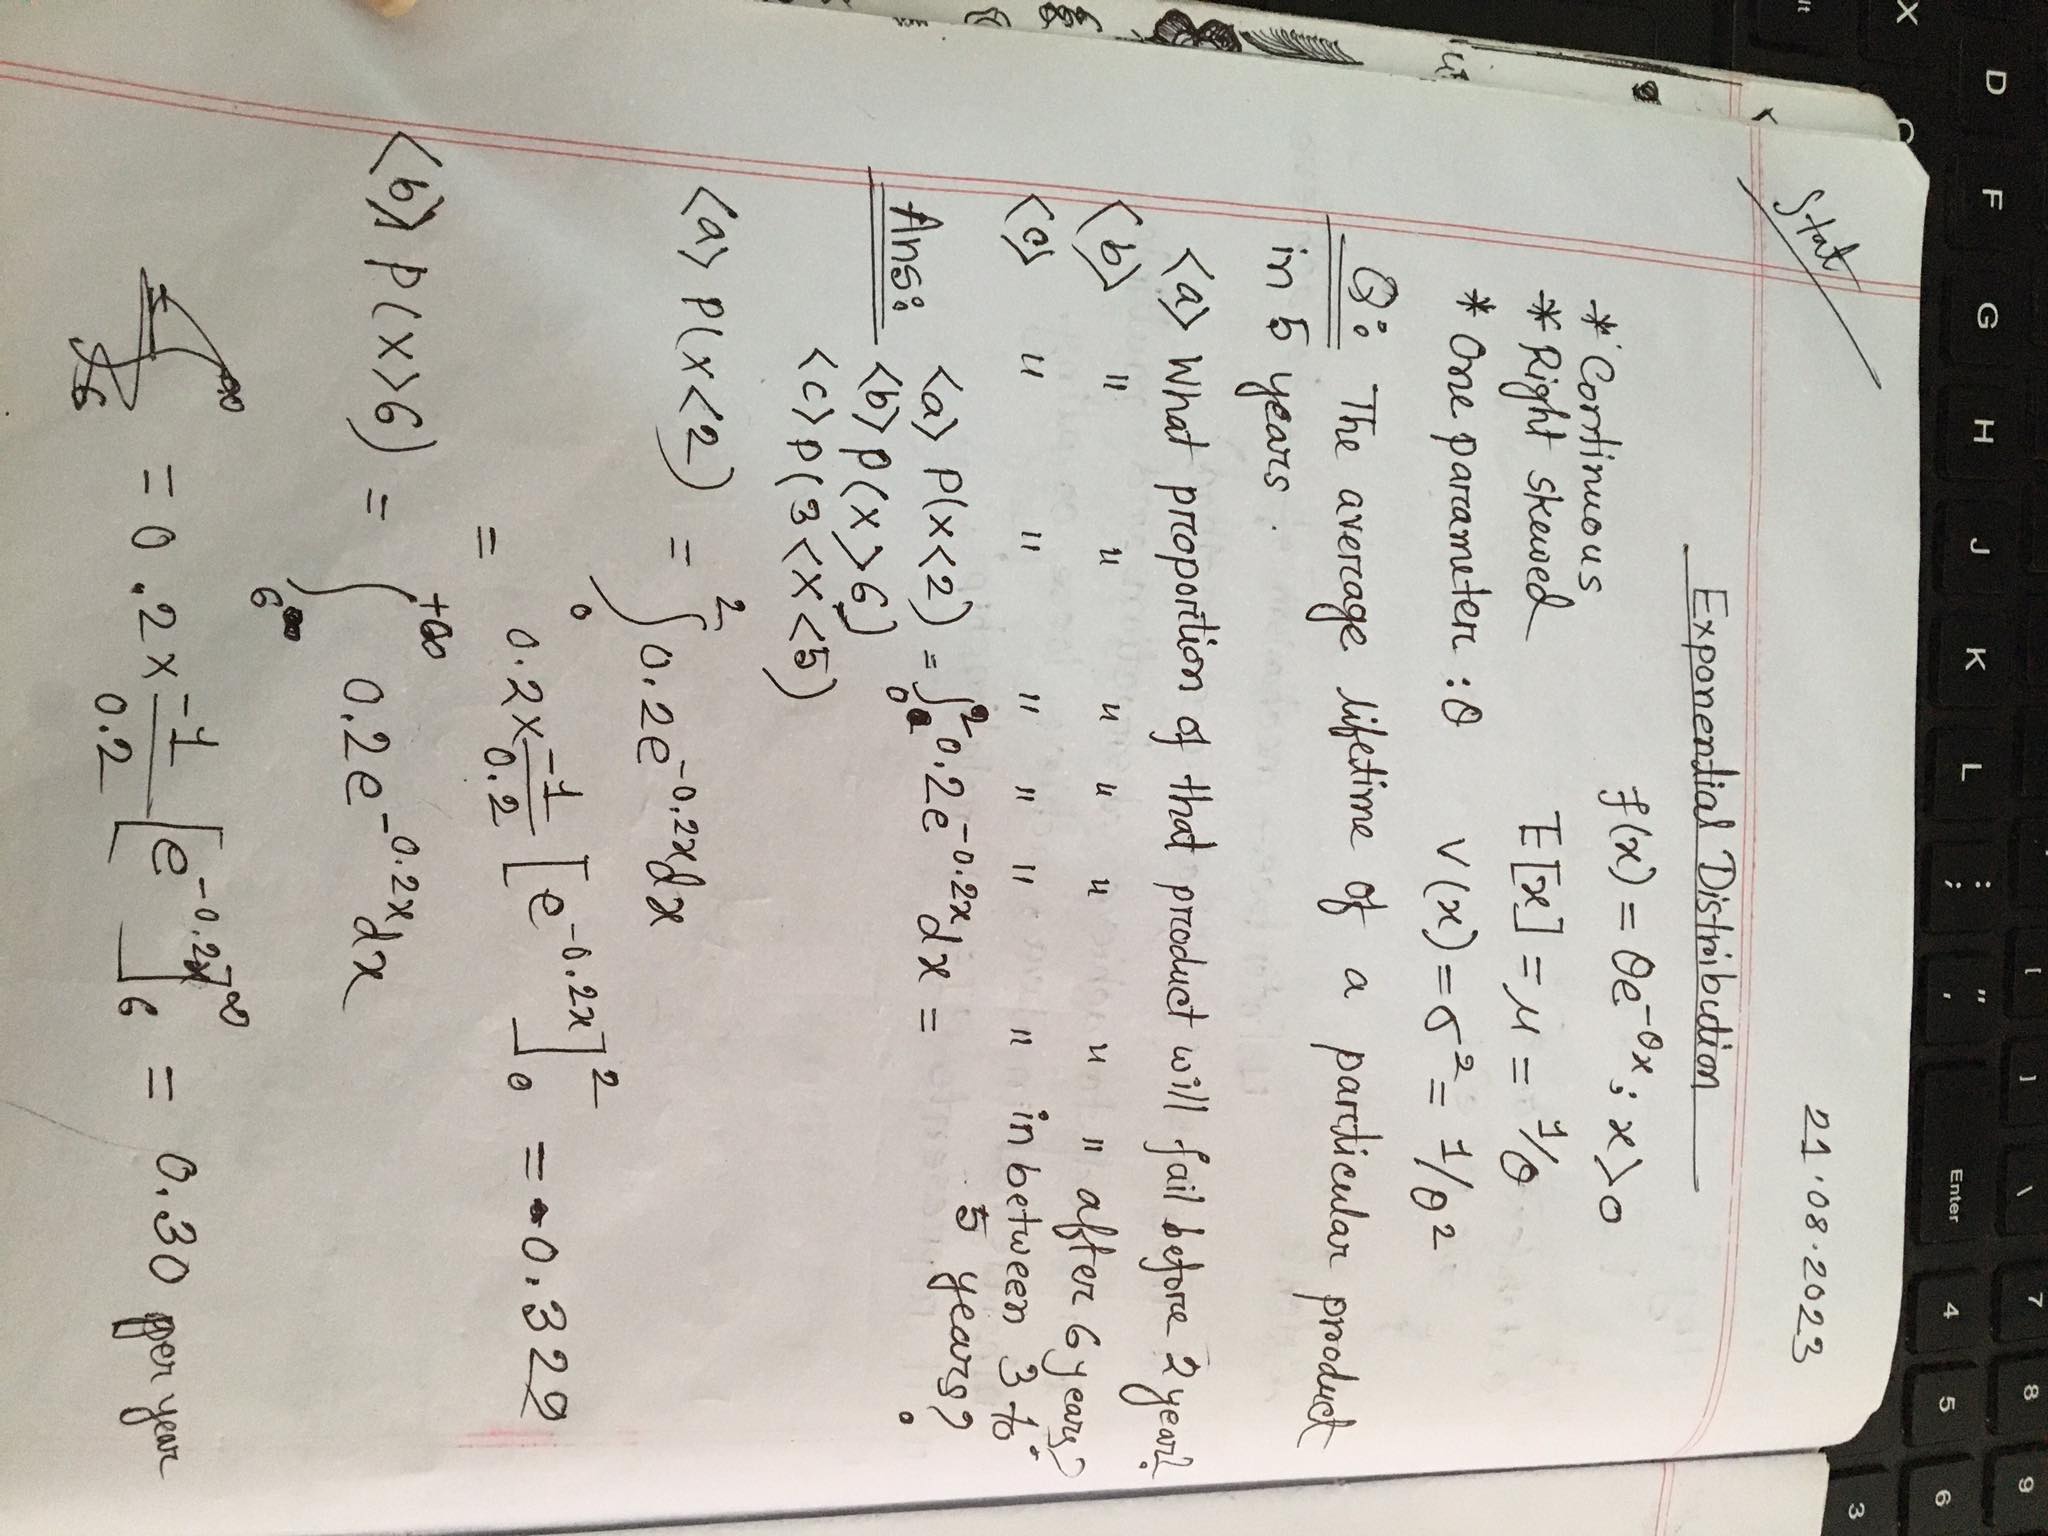 D F G H J K L : ; " ' Enter [ ] \ 7 8 9
4 5 6
X
3
lt
Stat
21.08.2023
Exponential Distribution
f(x) = θe^-θx ; x>0
* Continuous
* Right skewed
E[x] = μ = 1/θ
* One parameter : θ
V(x) = σ² = 1/θ²
Q: The average lifetime of a particular product
in 5 years.
<a> What proportion of that product will fail before 2 year?
<b> " " " " " " " after 6 years?
<c> " " " " " " in between 3 to
5 years?
Ans: <a> P(X<2) = ∫₀² 0.2e^-0.2x dx =
<b> P(X>6)
<c> P(3<X<5)
<a> P(X<2) = ∫₀² 0.2e^-0.2x dx
= 0.2 × -1/0.2 [e^-0.2x]₀² = 0.329
<b> P(X>6) = ∫₆^+∞ 0.2e^-0.2x dx
= 0.2 × -1/0.2 [e^-0.2x]₆^∞ = 0.30 per year